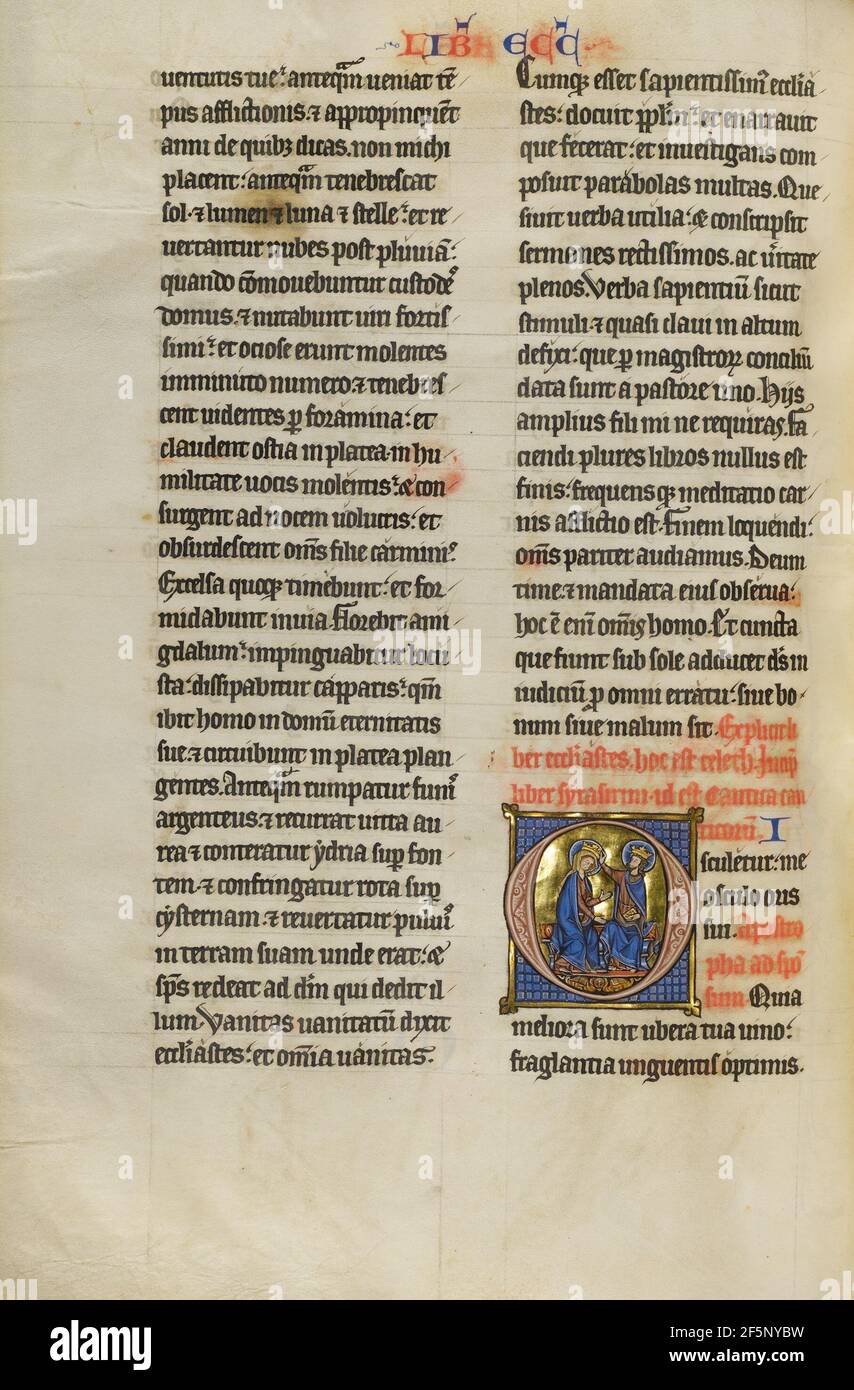 LIB ECC
uentutis tue: anteqm̄ ueniat tē
pus afflictionis. ⁊ appropinquēt
anni de quibꝫ dicas. non michi
placent: anteqm̄ tenebrescat
sol. ⁊ lumen ⁊ luna ⁊ stelle: et re
uertantur nubes post pluuiā:
quando cōmouebuntur custodeˢ
domus. ⁊ nutabunt uiri fortis
simi: et ociose erunt molentes
imminuto numero. ⁊ tenebres
cent uidentes ꝑ foramina: et
claudent ostia in platea. in hu
militate uocis molentis: & con
surgent ad uocem uolucris: et
obsurdescent om̄s filie carminiˢ.
Excelsa quoqꝫ timebunt: et for
midabunt in uia. Florebit ami
gdalum: impinguabitur locu
sta: dissipabitur capparis: qm̄
ibit homo in domū eternitatis
sue. ⁊ circuibunt in platea plan
gentes. Anteqm̄ rumpatur funiˢ
argenteus. ⁊ recurrat uitta au
rea ⁊ conteratur ydria suꝑ fon
tem. ⁊ confringatur rota suꝑ
cysternam. ⁊ reuertatur puluiˢ
in terram suam unde erat: &
sp̄s redeat ad dm̄ qui dedit il
lum. Vanitas uanitatū dixit
eccl̄iastes: et om̄ia uanitas.
Cumqꝫ esset sapientissimꝰ eccl̄ia
stes: docuit ppl̄m et enarrauit
que fecerat: et inuestigans com
posuit parabolas multas. Que
siuit uerba utilia: & conscripsit
sermones rectissimos. ac ū̓itate
plenos. Verba sapientiū sicut
stimuli. ⁊ quasi claui in altum
defixi: que ꝑ magistroꝝ conciliū
data sunt a pastore uno. Hijs
amplius fili mi ne requiras. Fa
ciendi plures libros nullus est
finis: frequensqꝫ meditatio car
nis afflictio est. Finem loquendi
om̄s pariter audiamus. Deum
time. ⁊ mandata eius obserua:
hoc ē eni̅ om̄is homo. Et cuncta
que fiunt sub sole adducet ds̄ in
iudiciū ꝑ omni erratu: siue bo
num siue malum sit. Explicit li
ber eccl̄iastes. hoc est celeth. Incip̄
liber syrasirim. id est Cantica can
ticorū. I
sculetur me
osculo oris
sui. apostro
pha ad spō
sum. Quia
meliora sunt ubera tua uino:
fraglantia unguentis optimis.
alamy
Image ID: 2F5NYBW
www.alamy.com